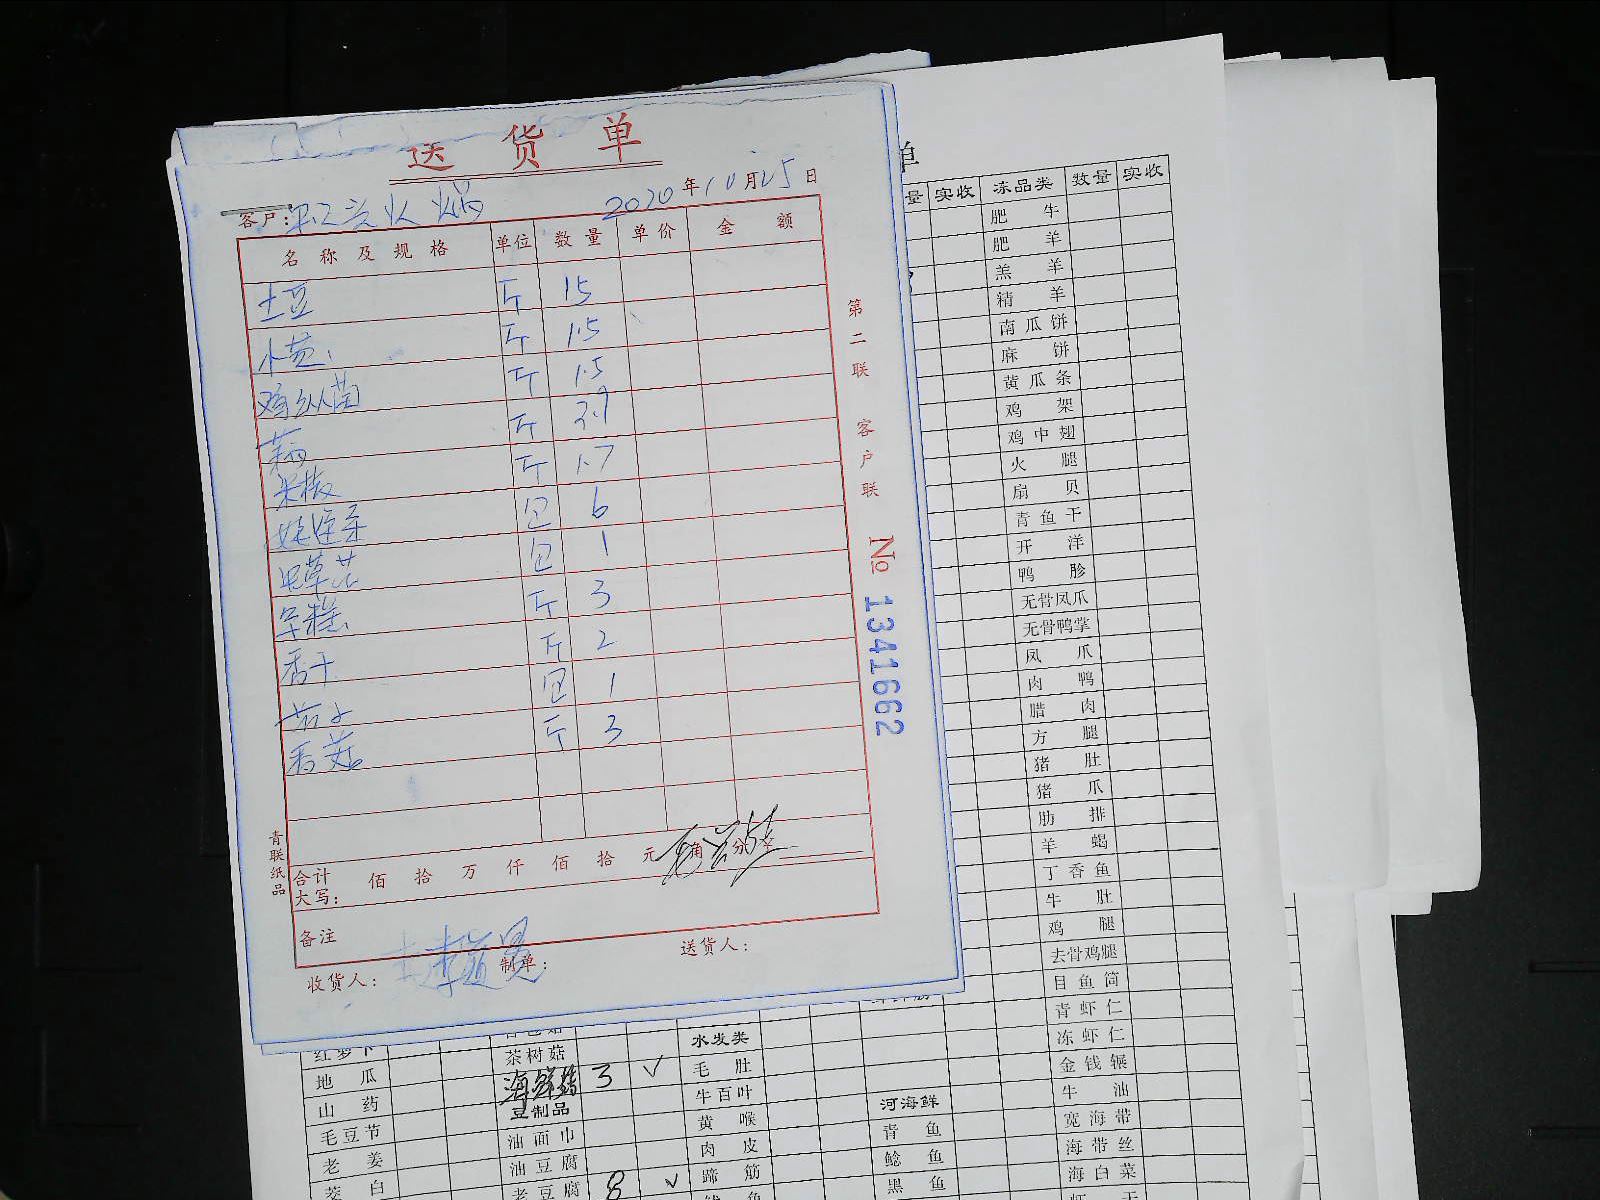 送 货 单
2020 年 10 月 25 日
客户:
名 称 及 规 格 单位 数 量 单 价 金 额
土豆 斤 15
小葱 斤 1.5
鸡纵菌 斤 1.5
斤 3.9
米椒 斤 1.7
娃连菜 包 6
虫草花 包 1
年糕 斤 3
香干 斤 2
茄子 包 1
香菇 斤 3
合计
大写: 佰 拾 万 仟 佰 拾 元 角 分
备注
收货人: 制单: 送货人:
青联纸品
第二联 客户联
№ 1341662
单
量 实收 冻品类 数量 实收
肥 牛
肥 羊
羔 羊
精 羊
南瓜饼
麻 饼
黄瓜条
鸡 架
鸡中翅
火 腿
扇 贝
青鱼干
开 洋
鸭 胗
无骨凤爪
无骨鸭掌
凤 爪
肉 鸭
腊 肉
方 腿
猪 肚
猪 爪
肋 排
羊 蝎
丁香鱼
牛 肚
鸡 腿
去骨鸡腿
目鱼筒
青虾仁
冻虾仁
金钱辗
牛 油
宽海带
海带丝
海白菜
红萝卜
地 瓜
山 药
毛豆节
老 姜
茭 白
茶树菇
海鲜菇 3 √
豆制品
油面巾
油豆腐
老豆腐 8 √
水发类
毛 肚
牛百叶
黄 喉
肉 皮
蹄 筋
河海鲜
青 鱼
鲶 鱼
黑 鱼